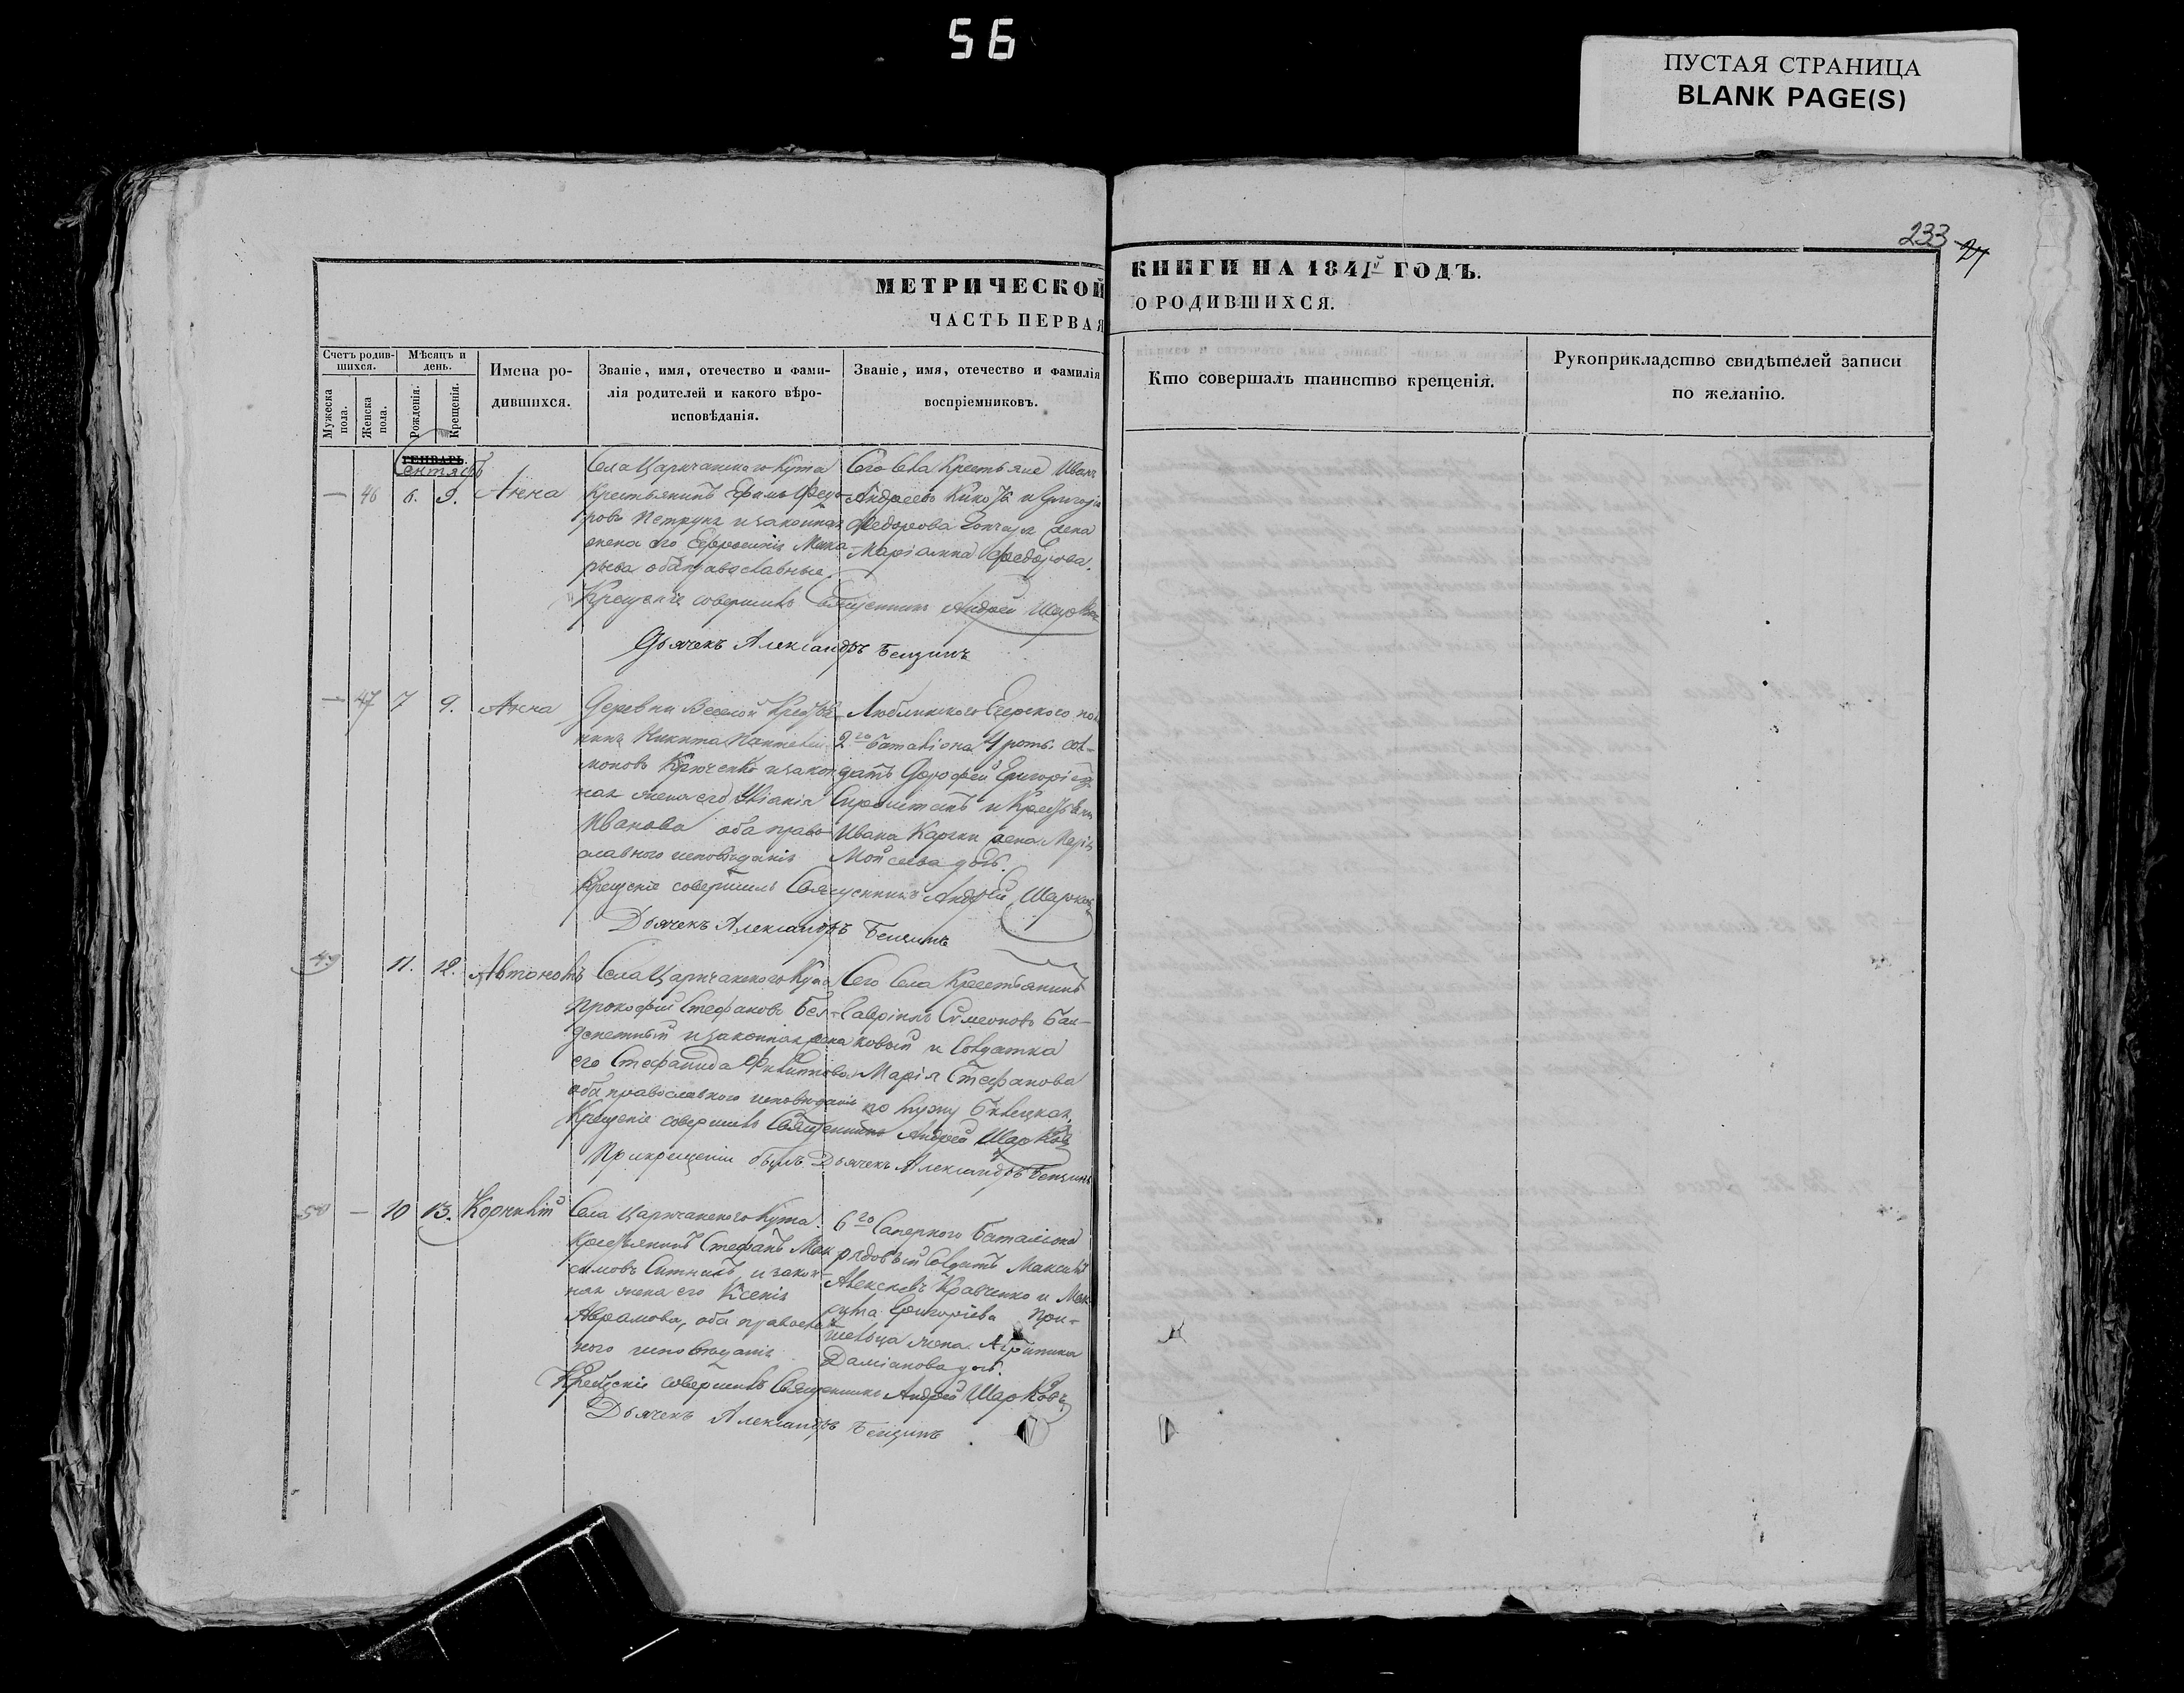 56
ПУСТАЯ СТРАНИЦА
BLANK PAGE(S)
233
27
МЕТРИЧЕСКОЙ КНИГИ НА 1841й ГОДЪ.
ЧАСТЬ ПЕРВАЯ О РОДИВШИХСЯ.
Счетъ родив-
шихся.
Мужеска
пола.
Женска
пола.
Мѣсяцъ и
день.
Рожденія.
Крещенія.
Имена ро-
дившихся.
Званіе, имя, отечество и фами-
лія родителей и какого вѣро-
исповѣданія.
Званіе, имя, отечество и фамилія
воспріемниковъ.
Кто совершалъ таинство крещенія.
Рукоприкладство свидѣтелей записи
по желанію.
ГЕНВАРЬ.
Сентябрь
— 46 6. 9. Анна
Села Царичанского Кута
Крестьянинъ Ефимъ Федо-
ровъ Петруня и законная
жена его Ефросинія Мака-
рьева оба православные.
Сего Села Крестьяне Иванъ
Андреевъ и Григорія
Федорова Гончара жена
Маріанна Федорова.
Крещеніе совершилъ Священникъ Андрей Шарковъ
Дьячекъ Александръ Бенцинъ
— 47 7 9. Анна
Деревни Веселой Крестья-
нинъ Никита Пантелей-
моновъ Крюченко и закон-
ная жена его Уліанія
Иванова оба право-
славного исповѣданія
Люблинского Егерского пол
2го баталіона 4 роты сол-
датъ Дорофей Григоріевъ
и Крестьянина
Ивана Каргин жена Марія
Моисеева дочь.
Крещеніе совершилъ Священникъ Андрей Шарковъ
Дьячекъ Александръ Бенцинъ
49 11. 12. Автономъ
Села Царичанского Кута
Прокофій Стефановъ Без-
денежный и законная жена
его Стефанида Филиппова
оба православного исповѣданія
Сего Села Крестьянинъ
Гавріилъ Симеоновъ Бан-
ковый и Солдатка
Марія Стефанова
по мужу Билецкая.
Крещеніе совершилъ Священникъ Андрей Шарковъ
При крещеніи былъ Дьячекъ Александръ Бенцинъ
50 — 10 13. Корнилій
Села Царичанского Кута
Крестьянинъ Стефанъ Мак
симовъ Ситникъ и закон-
ная жена его Ксенія
Аврамова, оба православ
ного исповѣданія
6го Сапернаго Баталіона
рядовый Солдатъ Максимъ
Алексѣевъ Кравченко и Мак
сима Григоріева При-
шельца жена Агрипина
Даміанова дочь
Крещеніе совершилъ Священникъ Андрей Шарковъ
Дьячекъ Александръ Бенцинъ